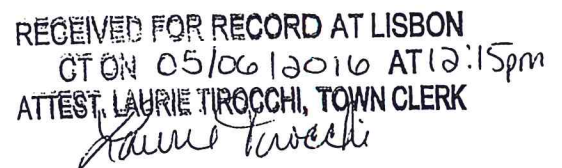 RECEIVED FOR RECORD AT LISBON
CT ON 05/06/2016 AT 12:15pm
ATTEST, LAURIE TIROCCHI, TOWN CLERK
Laurie Tirocchi